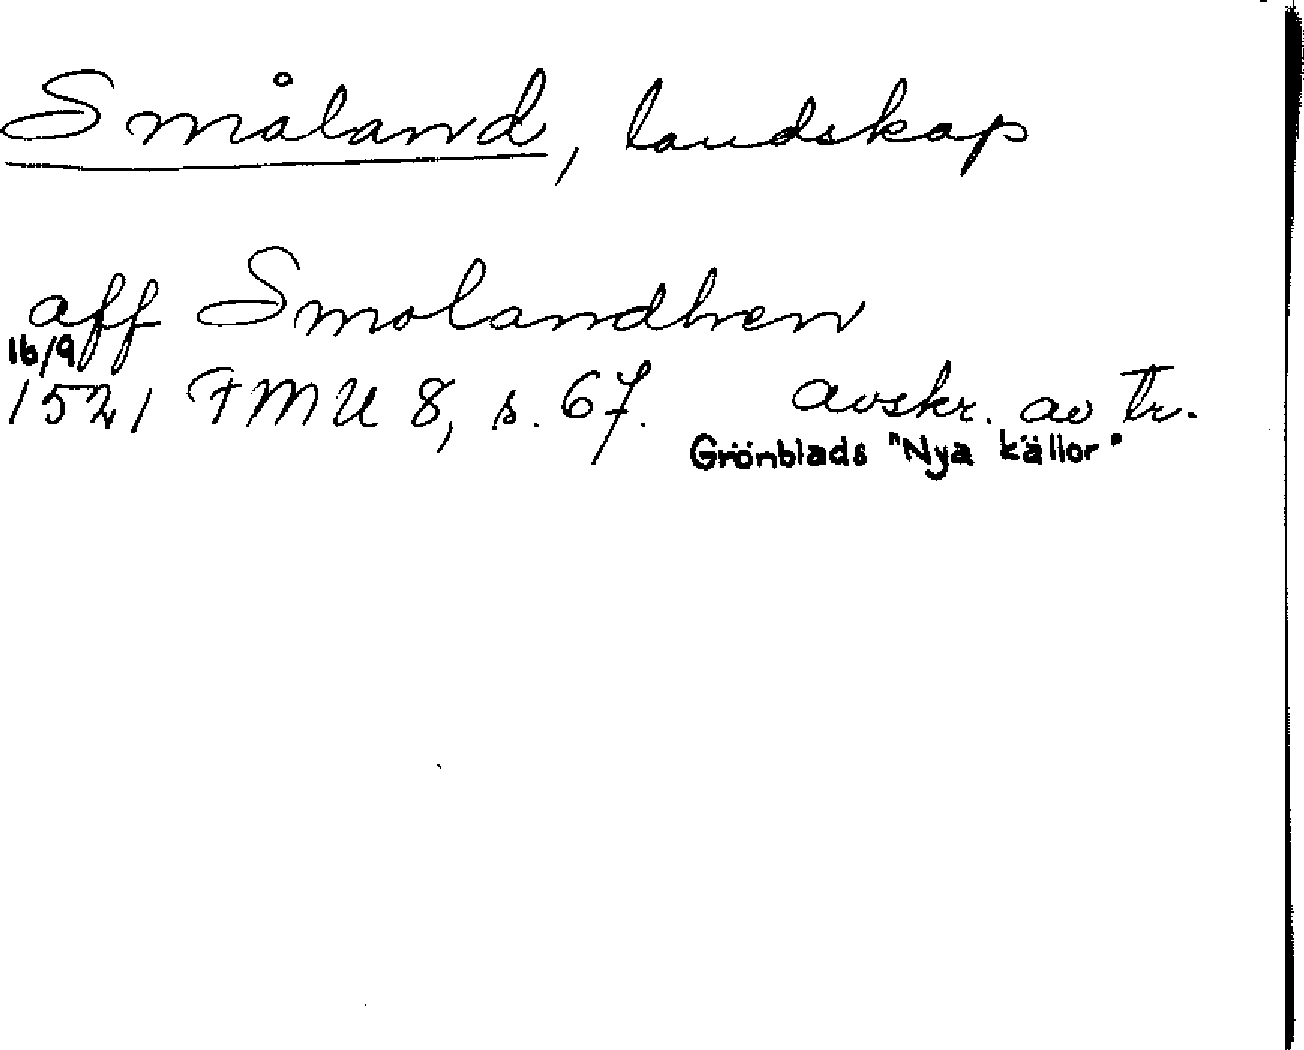 Småland, landskap
aff Smolandhen
16/9
1521 FMU 8, s. 67. avskr. av Tr.
Grönblads "Nya källor"